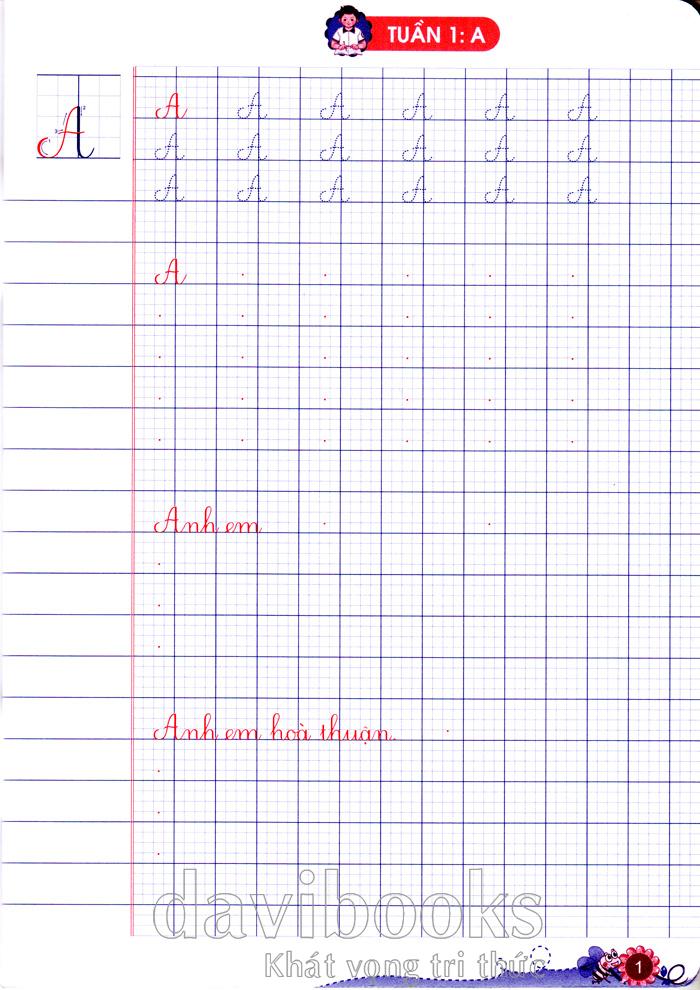 TUẦN 1: A
A
A A A A A A
A A A A A A
A A A A A A
A
Anh em
Anh em hoà thuận.
davibooks
Khát vọng tri thức
1